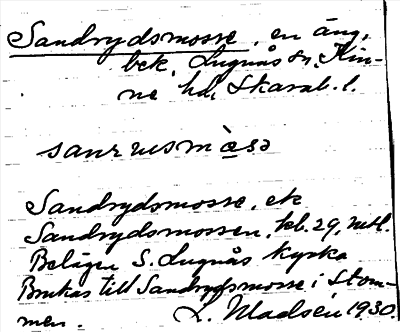 Sandrydsmosse, en äng,
bek. Lugnås sn, Kin-
ne hd, Skarab. l.
sanrusmὲsə
Sandrydsmosse, ek
Sandrydsmossen, kbl. 29,
Belägen S. Lugnås kyrka
Brukas till Sandrydsmosse i Stom-
men. L. Madsén 1930.